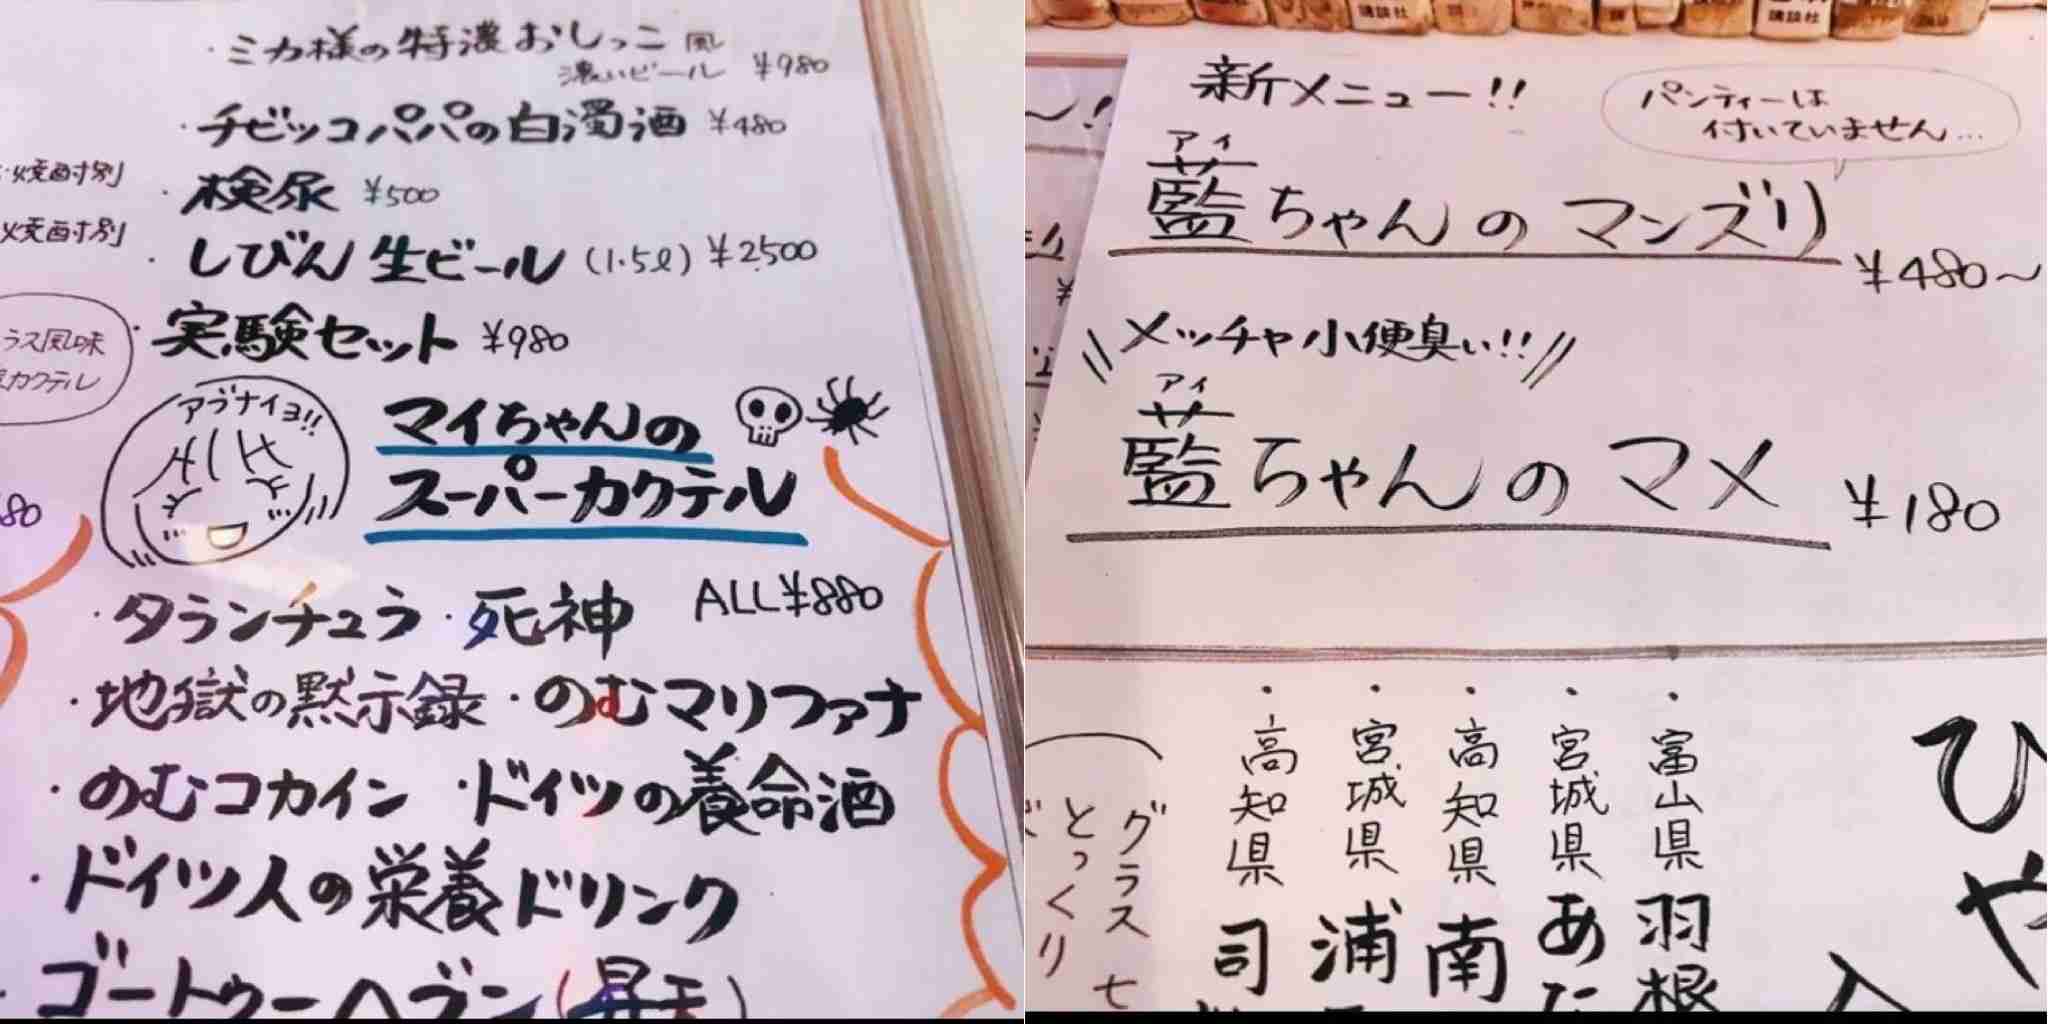 ・ミカ様の特濃おしっこ風
濃いビール ¥980
・チビッコパパの白濁酒 ¥480
・検尿 ¥500
・しびん生ビール (1.5ℓ) ¥2500
・実験セット ¥980
焼酎別
焼酎別
ラス風味
カクテル
80
アブナイヨ!!
マイちゃんの
スーパーカクテル
ALL¥880
・タランチュラ ・死神
・地獄の黙示録 ・のむマリファナ
・のむコカイン ・ドイツの養命酒
・ドイツ人の栄養ドリンク
・ゴートゥーヘブン(昇天)
講談社
講談社
新メニュー!!
パンティーは
付いていません…
アイ
藍ちゃんのマンズリ
¥480〜
メッチャ小便臭い!!
アイ
藍ちゃんのマメ
¥180
ひや
・富山県 羽根
・宮城県 あた
・高知県 南
・宮城県 浦
・高知県 司
グラス 七
とっくり